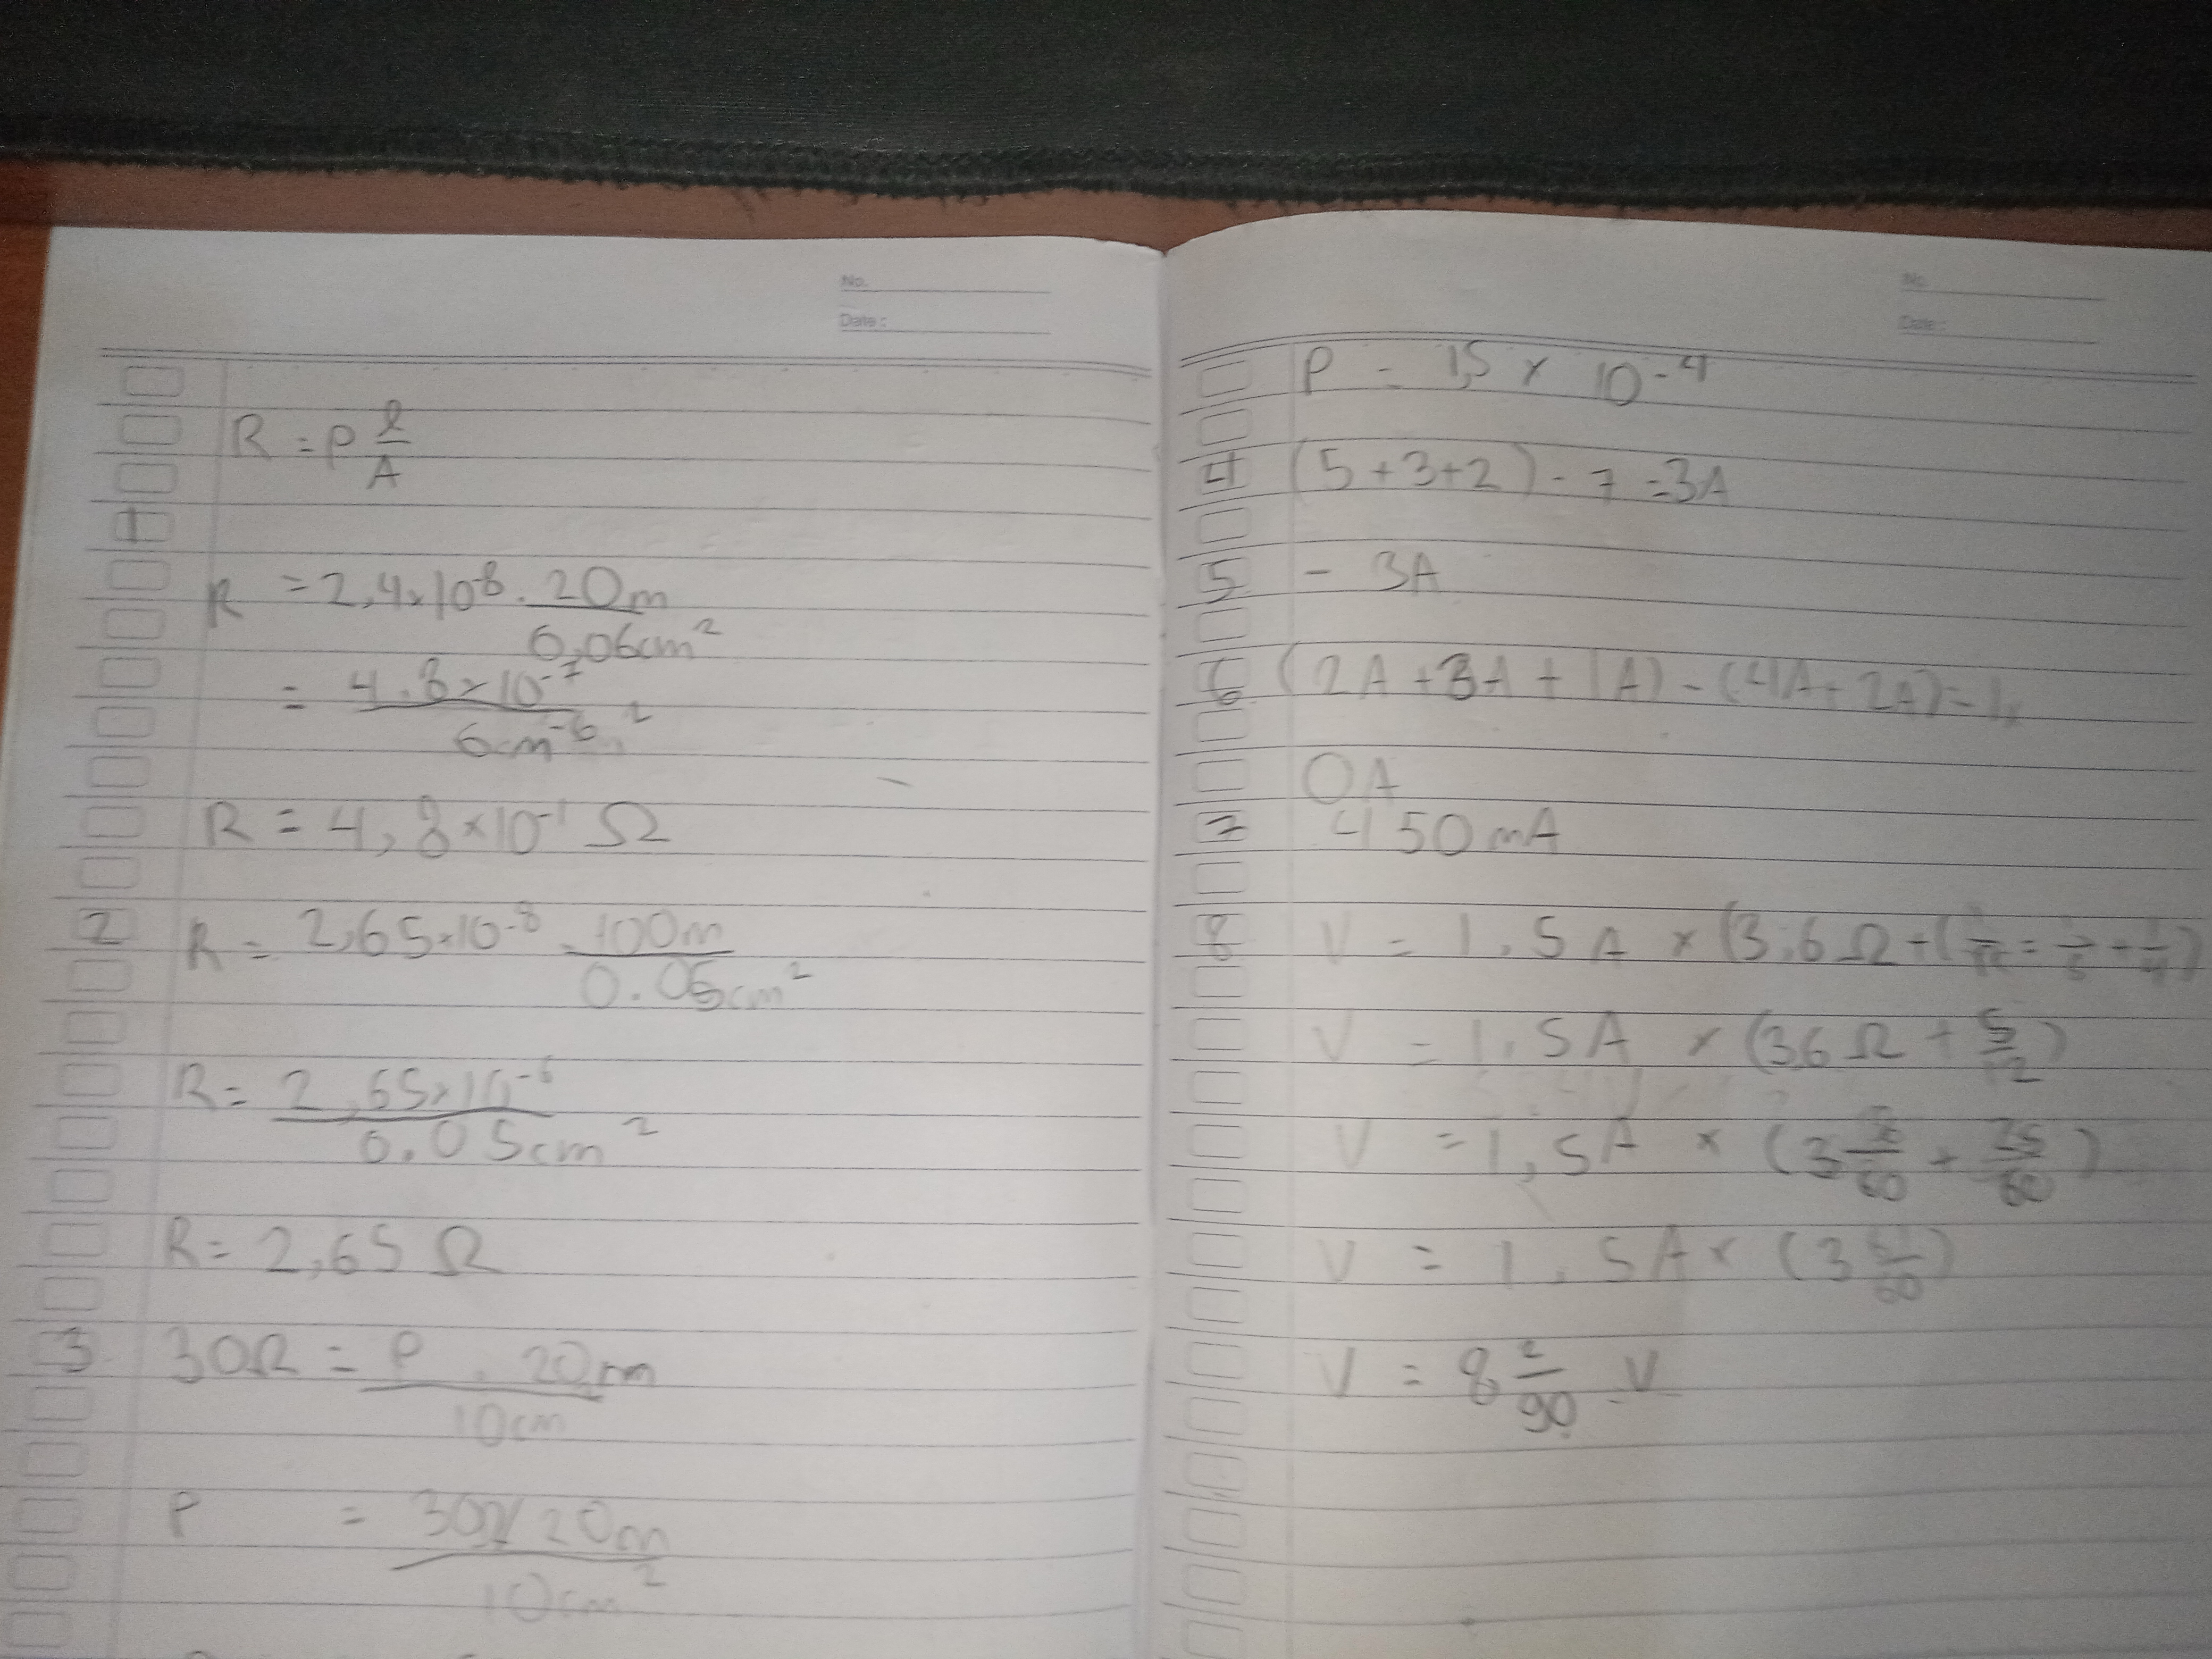 No.
Date :
R = ρ l/A
1
R = 2,4×10^-8 . 20m/0,06cm²
= 4.8×10^-7/6cm^-6 ²
R = 4,8×10^-1 Ω
2 R = 2,65×10^-8 . 100m/0.05cm²
R = 2,65×10^-6/0.05cm²
R = 2,65 Ω
3 30Ω = ρ . 20m/10cm
ρ = 30Ω 20m/10cm²
No.
Date :
ρ = 1,5 × 10^-4
4 (5+3+2) - 7 = 3A
5 - 3A
6 (2A + 3A + 1A) - (4A + 2A) =
0A
7 450mA
8 V = 1,5A × (3,6Ω +
V = 1,5A × (36Ω + 5/12)
V = 1,5A × (3 /60 + 25/60)
V = 1,5A × (3 /60)
V = 8 2/90 V